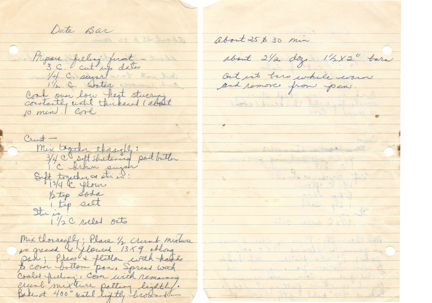 Date Bar
Prepare filling first -
3 C. cut up dates
1/4 C sugar
1 1/2 C water
Cook over low heat stirring
constantly until thickened (about
10 min) Cool
Crust -
Mix together thoroughly:
3/4 C soft shortening part butter
C brown sugar
Sift together & stir in:
1 3/4 C flour
1/2 tsp soda
1 tsp salt
Stir in
1 1/2 C rolled oats
Mix thoroughly; Place 1/2 crumb mixture
in greased & floured 13 x 9 oblong
pan; Press & flatten with hands
to cover bottom pan. Spread with
cooled filling. Cover with remaining
crumb mixture patting lightly.
Baked 400° until lightly browned -
about 25 to 30 min
about 2 1/2 doz 1 1/2 x 2" bars
Cut into bars while warm
and remove from pan.